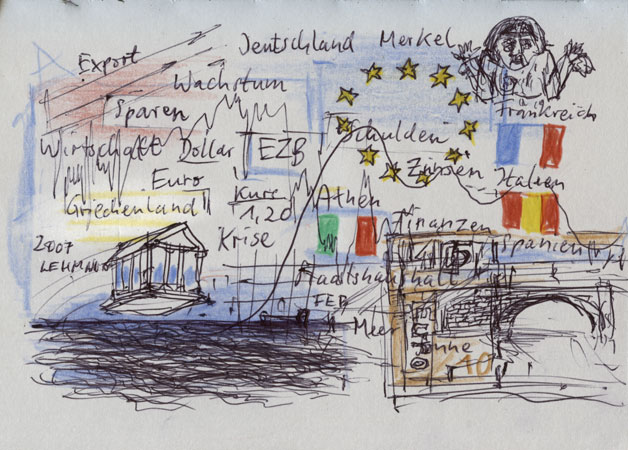 Deutschland Merkel
Export
Wachstum
Sparen
Frankreich
Schulden
Wirtschaft Dollar EZB
Zinsen
Euro
Italien
Kurs
1,20
Athen
Griechenland
Finanzen
Krise
Spanien
2007
Staatshaushalt
FEB
Meer
10